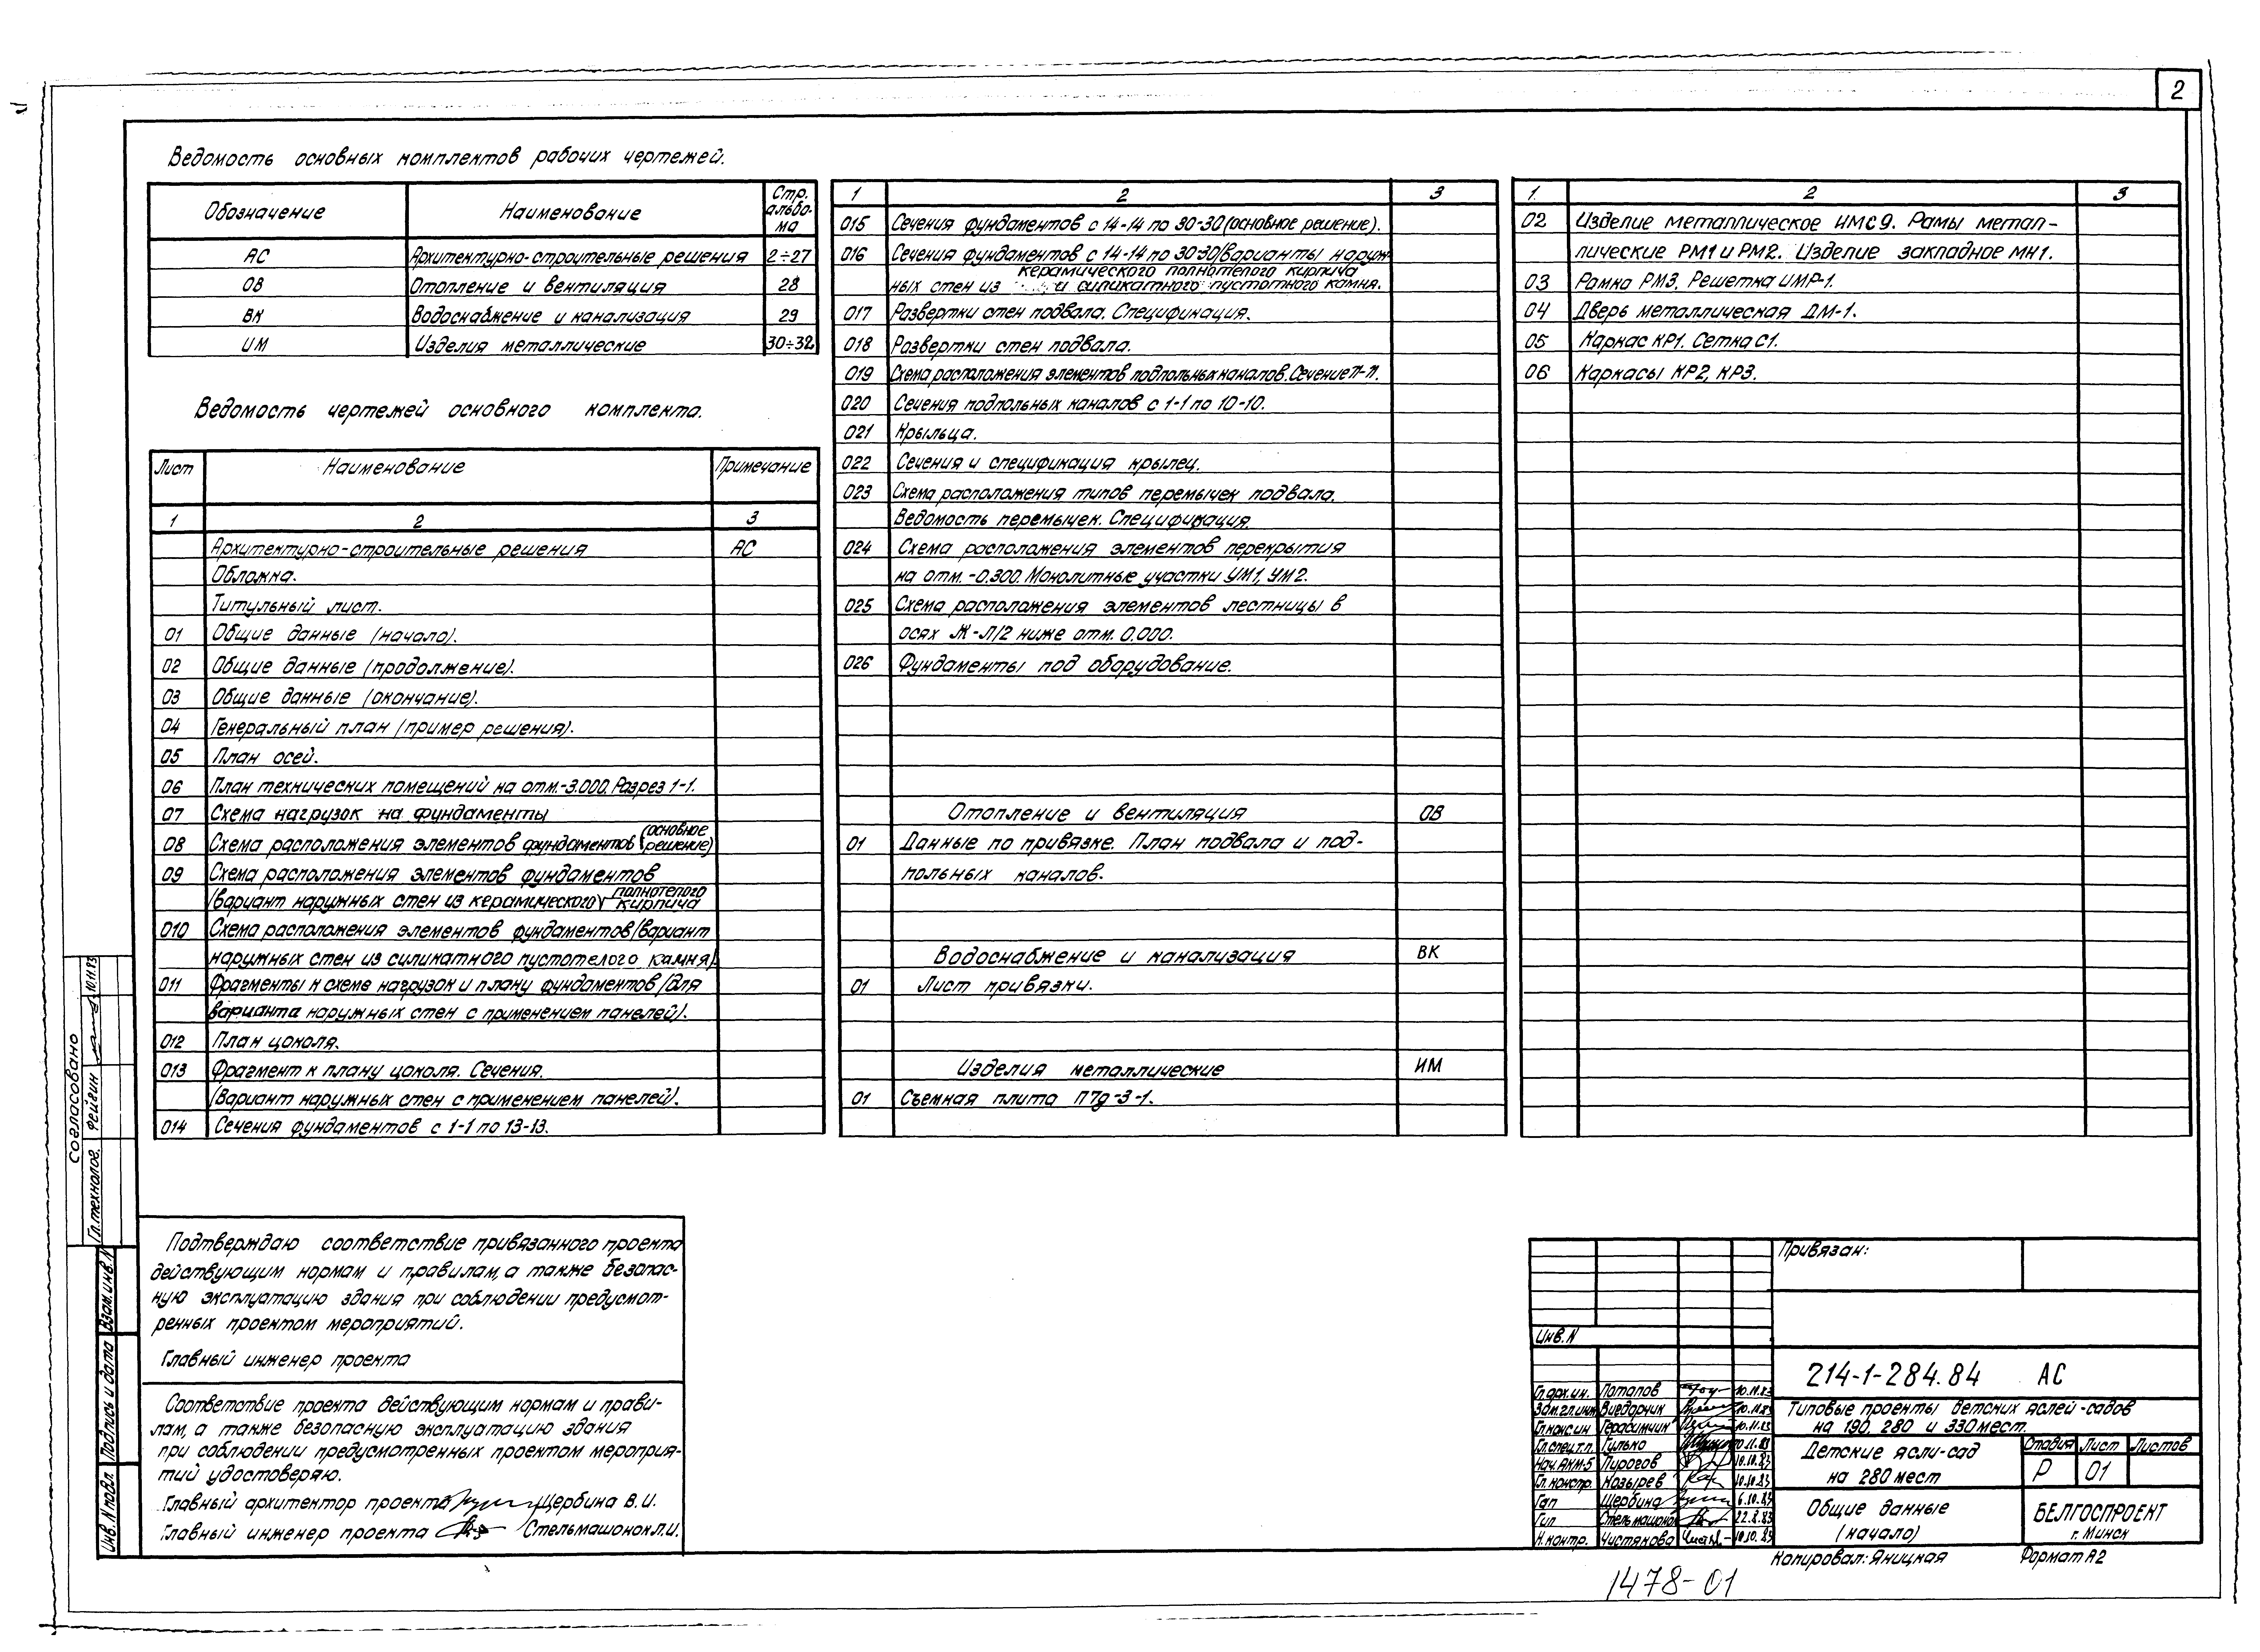 2
Ведомость основных комплектов рабочих чертежей.
Обозначение Наименование Стр. альбо- ма
АС Архитектурно-строительные решения 2÷27
ОВ Отопление и вентиляция 28
ВК Водоснабжение и канализация 29
ИМ Изделия металлические 30÷32
Ведомость чертежей основного комплекта.
Лист Наименование Примечание
1 2 3
Архитектурно-строительные решения АС
Обложка.
Титульный лист.
01 Общие данные (начало).
02 Общие данные (продолжение).
03 Общие данные (окончание).
04 Генеральный план (пример решения).
05 План осей.
06 План технических помещений на отм.-3.000. Разрез 1-1.
07 Схема нагрузок на фундаменты
08 Схема расположения элементов фундаментов (основное решение)
09 Схема расположения элементов фундаментов
(вариант наружных стен из керамического полнотелого кирпича
010 Схема расположения элементов фундаментов (вариант
наружных стен из силикатного пустотелого камня)
011 Фрагменты к схеме нагрузок и плану фундаментов (для
варианта наружных стен с применением панелей).
012 План цоколя.
013 Фрагмент к плану цоколя. Сечения.
(Вариант наружных стен с применением панелей).
014 Сечения фундаментов с 1-1 по 13-13.
1 2 3
015 Сечения фундаментов с 14-14 по 30-30 (основное решение).
016 Сечения фундаментов с 14-14 по 30-30 (варианты наруж-
керамического полнотелого кирпича
ных стен из и силикатного пустотного камня.
017 Развертки стен подвала. Спецификация.
018 Развертки стен подвала.
019 Схема расположения элементов подпольных каналов. Сечение П-П.
020 Сечения подпольных каналов с 1-1 по 10-10.
021 Крыльца.
022 Сечения и спецификация крылец.
023 Схема расположения типов перемычек подвала.
Ведомость перемычек. Спецификация.
024 Схема расположения элементов перекрытия
на отм. -0.300. Монолитные участки УМ1, УМ2.
025 Схема расположения элементов лестницы в
осях Ж-Л/2 ниже отм. 0.000.
026 Фундаменты под оборудование.
Отопление и вентиляция ОВ
01 Данные по привязке. План подвала и под-
польных каналов.
Водоснабжение и канализация ВК
01 Лист привязки.
Изделия металлические ИМ
01 Съемная плита П7д-3-1.
1. 2 3
02 Изделие металлическое ИМС9. Рамы метал-
лические РМ1 и РМ2. Изделие закладное МН1.
03 Рамка РМ3, Решетка ИМР-1.
04 Дверь металлическая ДМ-1.
05 Каркас КР1. Сетка С1.
06 Каркасы КР2, КР3.
Согласовано
Гл.технолог. Фейгин 10.11.83
Взам.инв.N
Подпись и дата
Инв.N подл
Подтверждаю соответствие привязанного проекта
действующим нормам и правилам, а также безопас-
ную эксплуатацию здания при соблюдении предусмот-
ренных проектом мероприятий.
Главный инженер проекта
Соответствие проекта действующим нормам и прави-
лам, а также безопасную эксплуатацию здания
при соблюдении предусмотренных проектом мероприя-
тий удостоверяю.
Главный архитектор проекта Щербина В.И.
Главный инженер проекта Стельмашонок Л.И.
Привязан:
Инв.N
214-1-284.84 АС
Гл.арх.ин. Потапов 10.11.83
Зам.гл.инж Виедарчик 10.11.83
Гл.конс.ин Герасимчик 10.11.83
Гл.спец.т.п. Гулько 10.11.83
Нач.АКМ-5 Пирогов 10.10.83
Гл.констр. Козырев 10.10.83
Гап Щербина 6.10.83
Гип Стельмашонок 22.8.83
Н.контр. Чистякова 10.10.83
Типовые проекты детских яслей-садов
на 190, 280 и 330 мест.
Детские ясли-сад
на 280 мест
Стадия Лист Листов
Р 01
Общие данные
(начало)
БЕЛГОСПРОЕКТ
г. Минск
Копировал: Яницкая Формат А2
1478-01